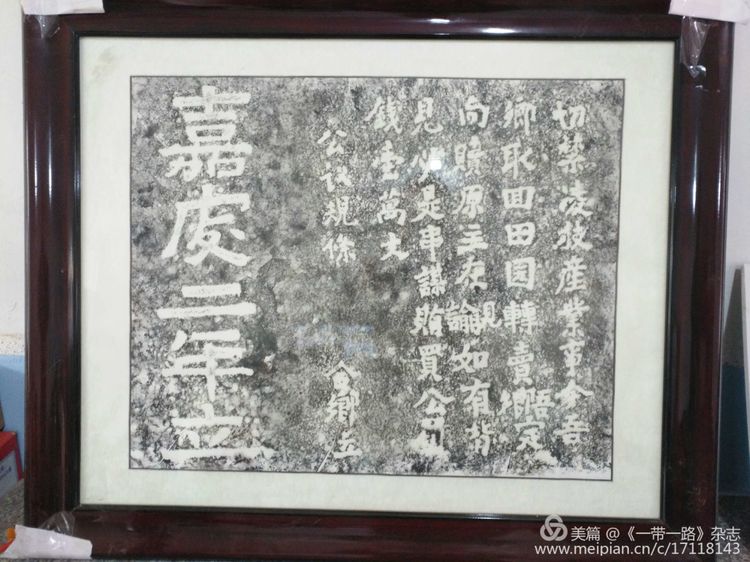 切禁凌產業事合吾
鄉囬田园轉賣
向贖原主不論親如有背
見是串謀賄買公罰
錢壹萬文
公議規條 仝鄉立
嘉慶二年立
美篇 @《一带一路》杂志
www.meipian.cn/c/17118143